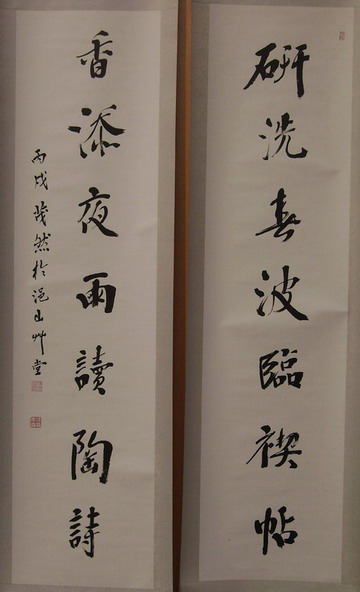 研洗春波臨禊帖
香添夜雨讀陶詩
丙戌茂然於浥山艸堂